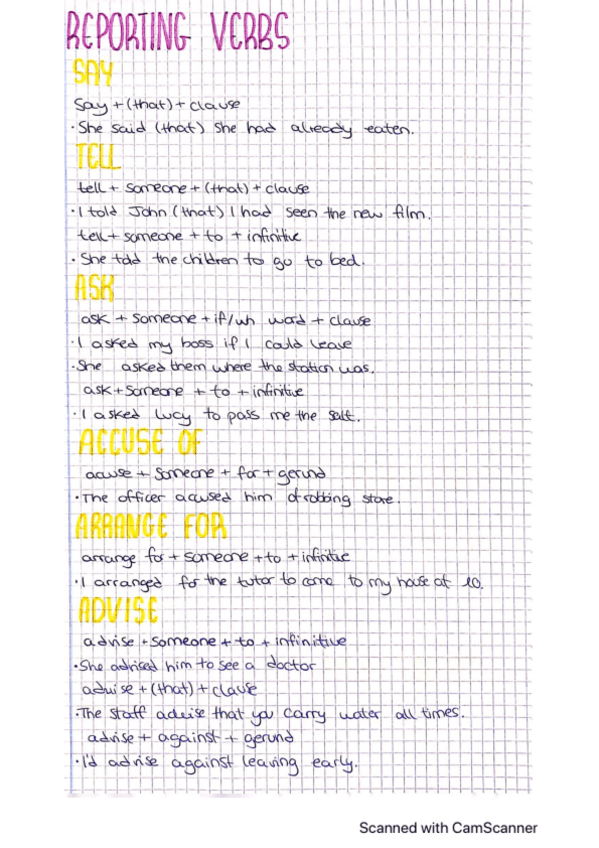 REPORTING VERBS
SAY
Say + (that) + clause
· She said (that) She had already eaten.
TELL
tell + someone + (that) + clause
· I told John (that) I had seen the new film.
tell + someone + to + infinitive
· She told the children to go to bed.
ASK
ask + someone + if/wh word + clause
· I asked my boss if I could leave
· She asked them where the station was.
ask + someone + to + infinitive
· I asked Lucy to pass me the salt.
ACCUSE OF
acuse + someone + for + gerund
· The officer acused him of robbing store.
ARRANGE FOR
arrange for + someone + to + infinitive
· I arranged for the tutor to come to my house at 10.
ADVISE
advise + someone + to + infinitive
· She advised him to see a doctor
advise + (that) + clause
· The staff advise that you carry water all times.
advise + against + gerund
· I'd advise against leaving early.
Scanned with CamScanner